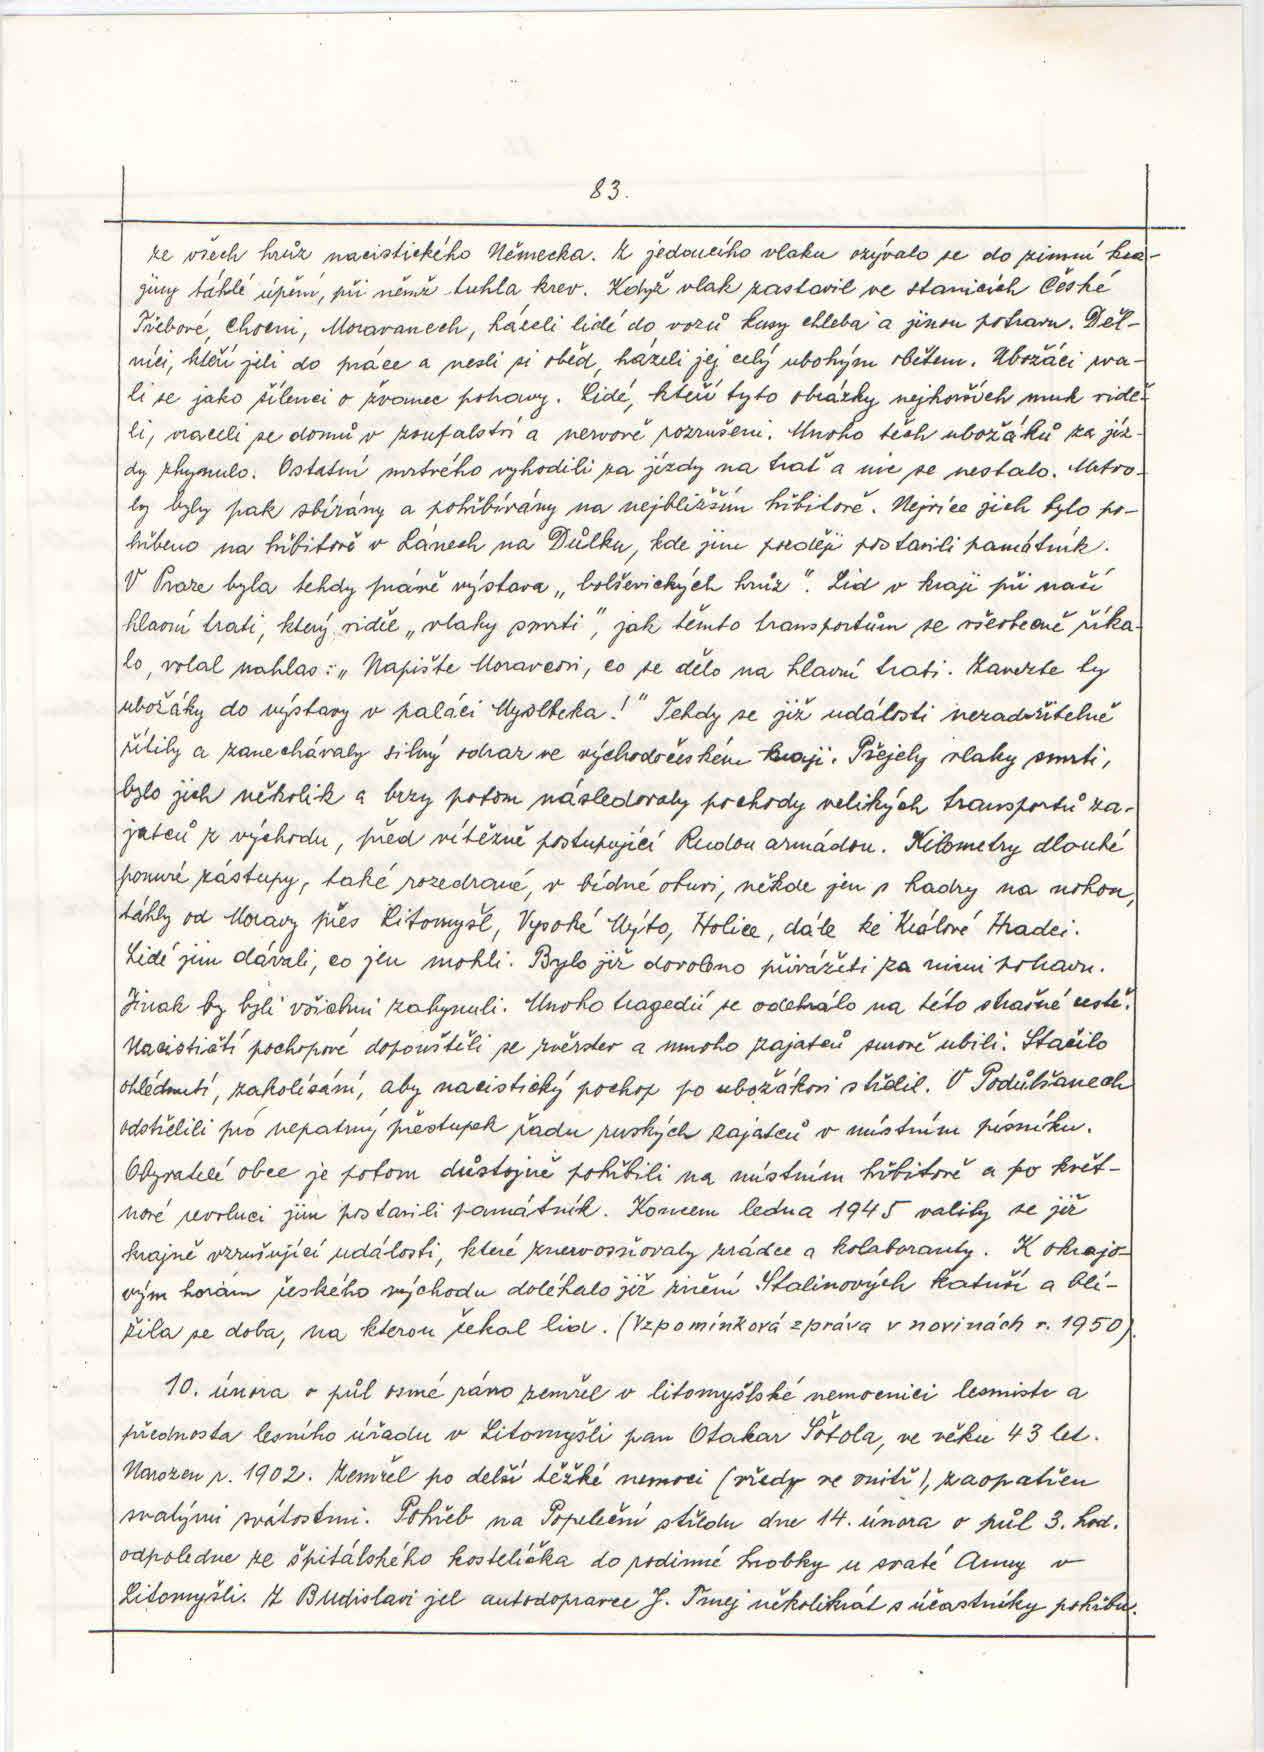 83.
ze všech hrůz nacistického Německa. Z jedoucího vlaku ozývalo se do zimní kra-
jiny táhlé úpění, při němž tuhla krev. Když vlak zastavil ve stanicích České
Třebové, Chocni, Moravanech, házeli lidé do vozů kusy chleba a jinou potravu. Děl-
níci, kteří jeli do práce a nesli si oběd, házeli jej celý ubohým obětem. Ubožáci rva-
li se jako šílenci o žvanec potravy. Lidé, kteří tyto obrázky nejhorších muk vidě-
li, vraceli se domů v zoufalství a nervově rozrušeni. Mnoho těch ubožáků za jíz-
dy zhynulo. Ostatní mrtvého vyhodili za jízdy na trať a nic se nestalo. Mrtvo-
ly byly pak sbírány a pohřbívány na nejbližším hřbitově. Nejvíce jich bylo po-
hřbeno na hřbitově v Lánech na Důlku, kde jim později postavili památník.
V Praze byla tehdy právě výstava „bolševických hrůz". Lid v kraji při naší
hlavní trati, který viděl „vlaky smrti", jak těmto transportům se všeobecně říka-
lo, volal nahlas: „Napište Moravcovi, co se dělo na hlavní trati. Zavezte ty
ubožáky do výstavy v paláci Myslbeka!" Tehdy se již události nezadržitelně
řítily a zanechávaly silný odraz ve východočeském kraji. Přejely vlaky smrti,
bylo jich několik a brzy potom následovaly pochody velikých transportů za-
jatců z východu, před vítězně postupující Rudou armádou. Kilometry dlouhé
ponuré zástupy, také rozedrané, v bídné obuvi, někde jen s hadry na nohou,
táhly od Moravy přes Litomyšl, Vysoké Mýto, Holice, dále ke Králové Hradci.
Lidé jim dávali, co jen mohli. Bylo již dovoleno přivážeti za nimi potravu.
Jinak by byli všichni zahynuli. Mnoho tragedií se odehrálo na této strašné cestě.
Nacističtí pochopové dopouštěli se zvěrstev a mnoho zajatců surově ubili. Stačilo
ohlédnutí, zakolísání, aby nacistický pochop po ubožákovi střelil. V Podůlšanech
odstřelili pro nepatrný přestupek řadu ruských zajatců v místním písníku.
Obyvatelé obce je potom důstojně pohřbili na místním hřbitově a po květ-
nové revoluci jim postavili památník. Koncem ledna 1945 valily se již
krajně vzrušující události, které znervosňovaly zrádce a kolaboranty. K okrajo-
vým horám českého východu doléhalo již znění Stalinových katuší a blí-
žila se doba, na kterou čekal lid. (Vzpomínková zpráva v novinách r. 1950).
10. února o půl osmé ráno zemřel v litomyšlské nemocnici lesmistr a
přednosta lesního úřadu v Litomyšli pan Otakar Šótola, ve věku 43 let.
Narozen r. 1902. Zemřel po delší těžké nemoci (vředy ve vnitř), zaopatřen
svatými svátostmi. Pohřeb na Popeleční středu dne 14. února o půl 3. hod.
odpoledne ze špitálského kostelíčka do rodinné hrobky u svaté Anny v
Litomyšli. Z Budislavi jel autodopravce J. Tmej několikrát s účastníky pohřbu.